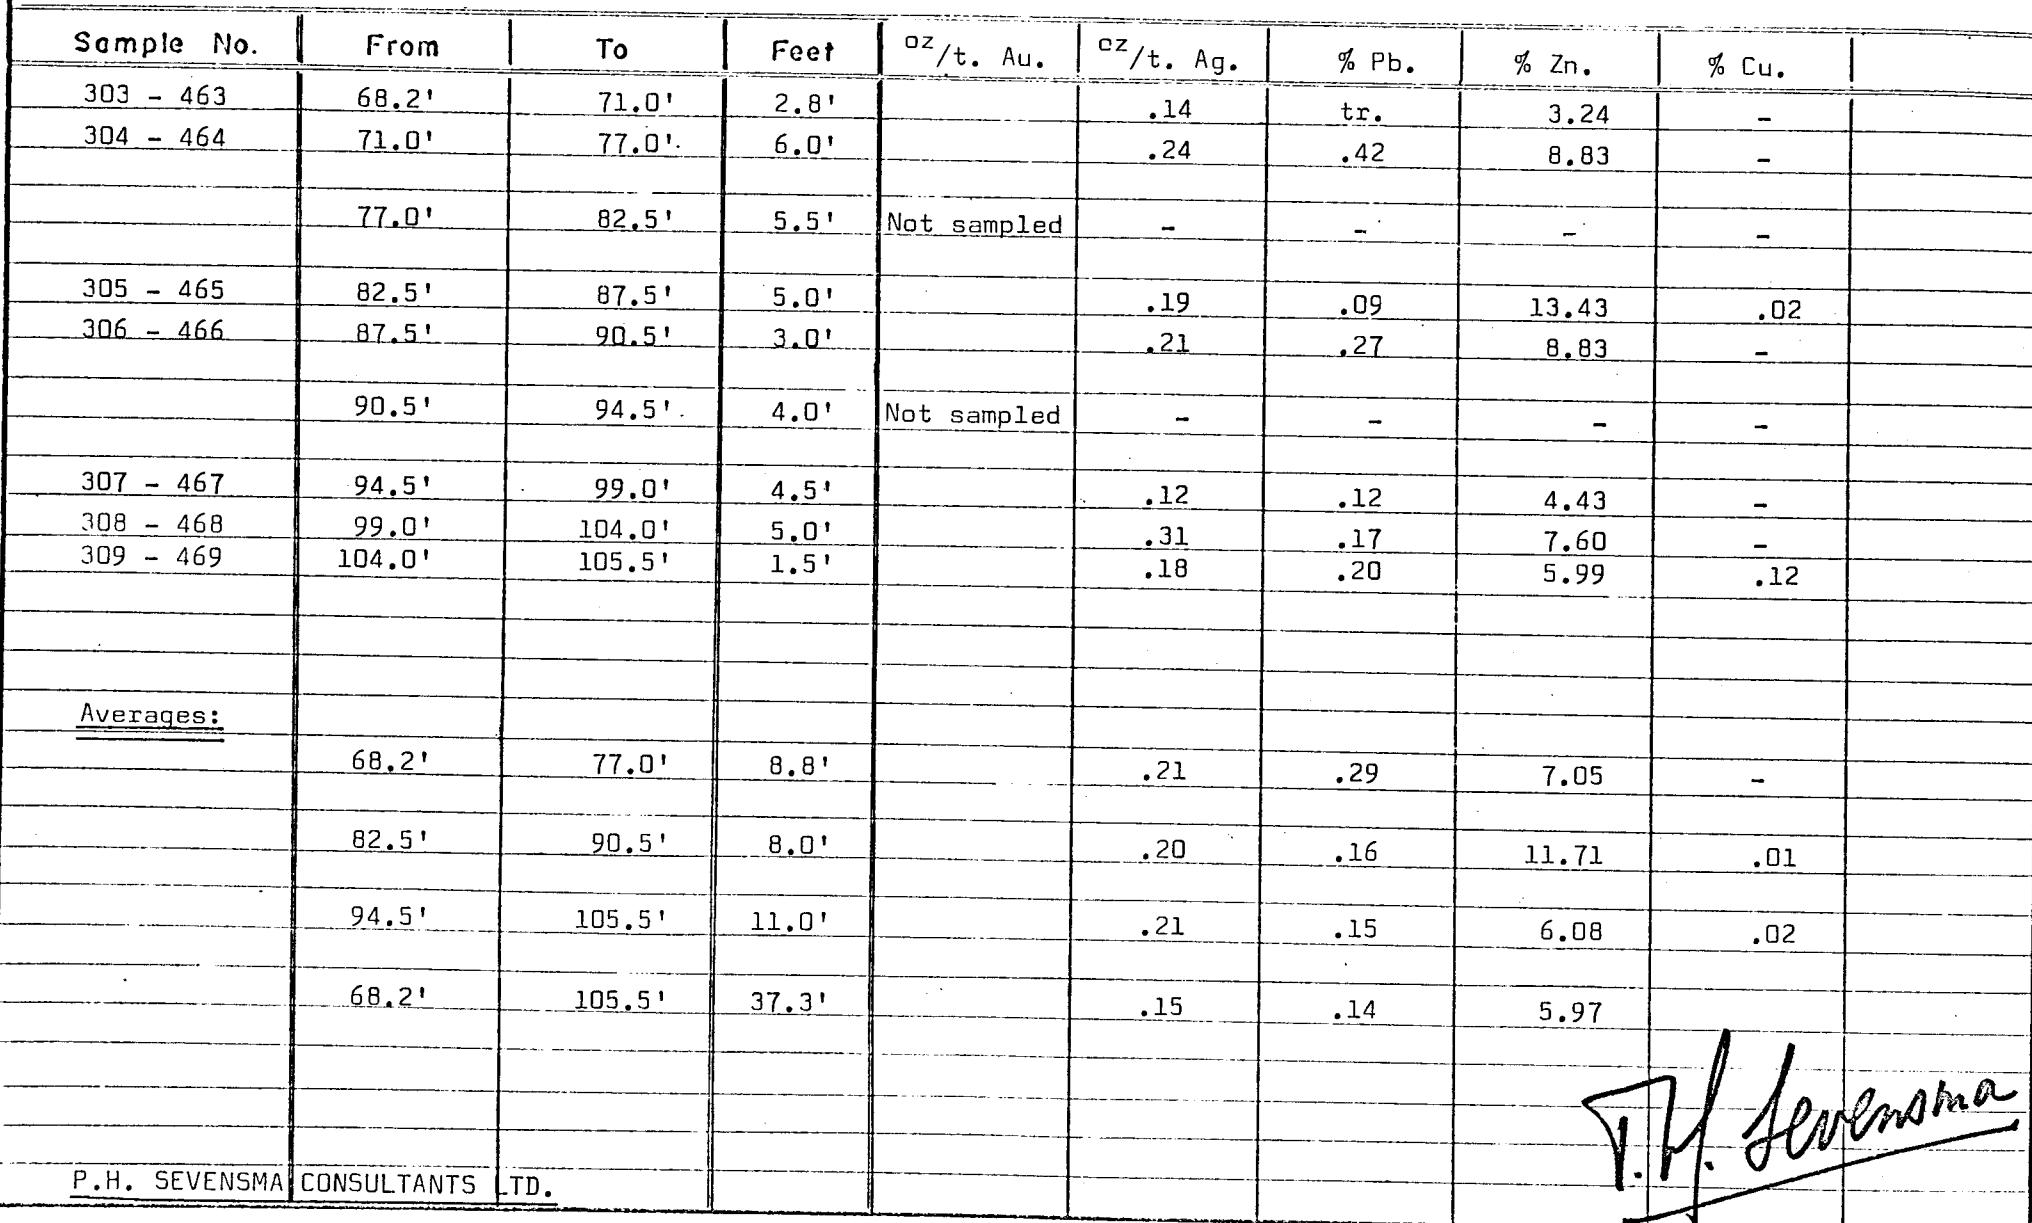 Sample No. From To Feet oz/t. Au. oz/t. Ag. % Pb. % Zn. % Cu.
303 - 463 68.2' 71.0' 2.8' .14 tr. 3.24 -
304 - 464 71.0' 77.0' 6.0' .24 .42 8.83 -
77.0' 82.5' 5.5' Not sampled - - - -
305 - 465 82.5' 87.5' 5.0' .19 .09 13.43 .02
306 - 466 87.5' 90.5' 3.0' .21 .27 8.83 -
90.5' 94.5' 4.0' Not sampled - - - -
307 - 467 94.5' 99.0' 4.5' .12 .12 4.43 -
308 - 468 99.0' 104.0' 5.0' .31 .17 7.60 -
309 - 469 104.0' 105.5' 1.5' .18 .20 5.99 .12
Averages:
68.2' 77.0' 8.8' .21 .29 7.05 -
82.5' 90.5' 8.0' .20 .16 11.71 .01
94.5' 105.5' 11.0' .21 .15 6.08 .02
68.2' 105.5' 37.3' .15 .14 5.97
P.H. Sevensma
P.H. SEVENSMA CONSULTANTS LTD.